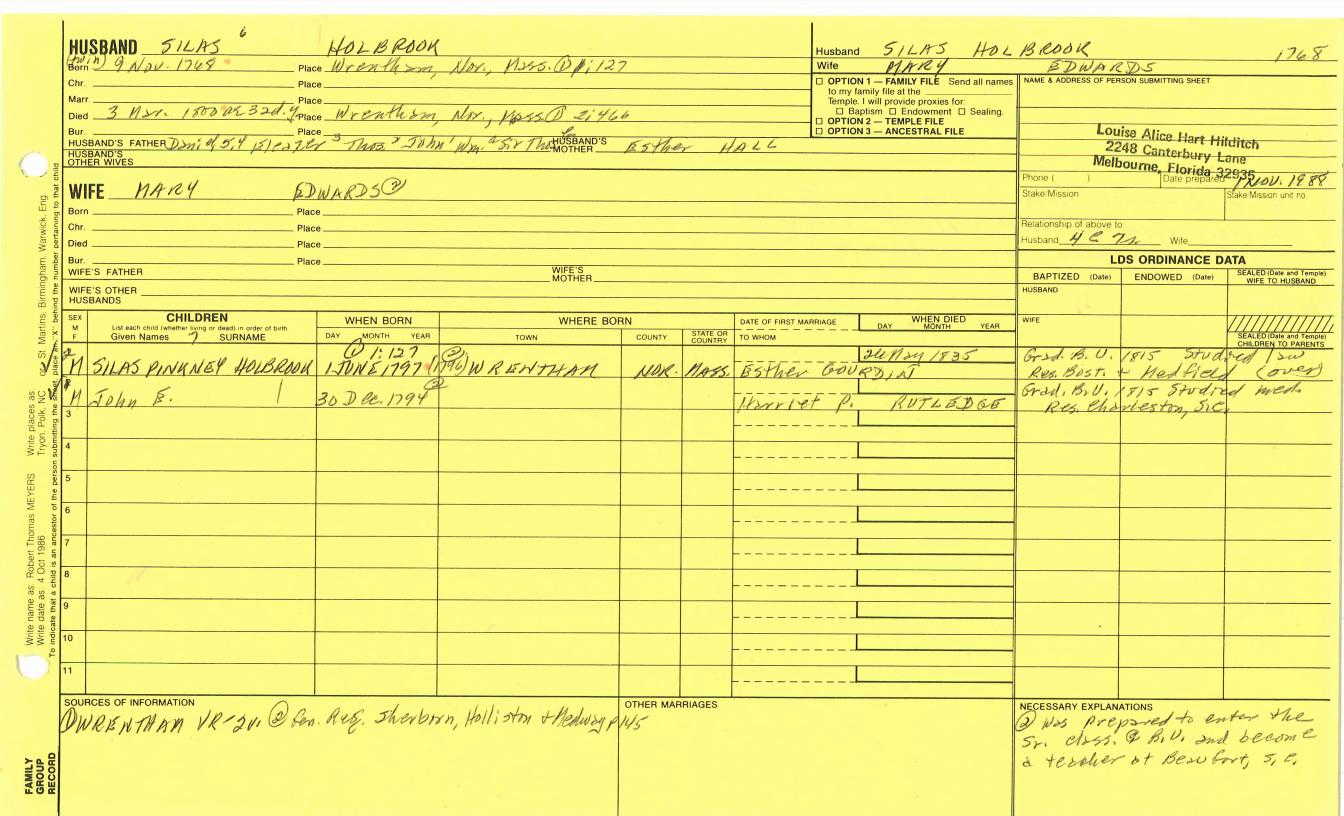 HUSBAND SILAS 6 HOLBROOK
(twin)
Born 9 Nov. 1768 Place Wrentham, Nor., Mass. ① p1:127
Chr. Place
Marr Place
Died 3 Mar. 1800 ae 32d.y. Place Wrentham, Nor., Mass ① 2:466
Bur. Place
HUSBAND'S FATHER Daniel 5,4 Eleazer 3 Thos. 2 John 1 Wm. a Sir Thos. HUSBAND'S MOTHER Esther HALL
HUSBAND'S OTHER WIVES
Husband SILAS HOLBROOK 1768
Wife MARY EDWARDS
☐ OPTION 1 — FAMILY FILE Send all names
to my family file at the
Temple. I will provide proxies for:
☐ Baptism ☐ Endowment ☐ Sealing.
☐ OPTION 2 — TEMPLE FILE
☐ OPTION 3 — ANCESTRAL FILE
NAME & ADDRESS OF PERSON SUBMITTING SHEET
Louise Alice Hart Hilditch
2248 Canterbury Lane
Melbourne, Florida 32935
Phone ( ) Date prepared 1 NOV. 1988
Stake/Mission Stake/Mission unit no.
Relationship of above to
Husband 4C 7r. Wife
WIFE MARY EDWARDS ②
Born Place
Chr. Place
Died Place
Bur. Place
WIFE'S FATHER WIFE'S MOTHER
WIFE'S OTHER HUSBANDS
LDS ORDINANCE DATA
BAPTIZED (Date) ENDOWED (Date) SEALED (Date and Temple) WIFE TO HUSBAND
HUSBAND
WIFE
SEALED (Date and Temple) CHILDREN TO PARENTS
SEX M F
CHILDREN
List each child (whether living or dead) in order of birth
Given Names 7 SURNAME
WHEN BORN
DAY MONTH YEAR
WHERE BORN
TOWN COUNTY STATE OR COUNTRY
DATE OF FIRST MARRIAGE
TO WHOM
WHEN DIED
DAY MONTH YEAR
2 ① 1:127 ② 26 May 1835 Grad. B.U. 1815 Studied law
M SILAS PINKNEY HOLBROOK 1 JUNE 1797 (1796) WRENTHAM NOR. MASS. Esther GOURDIN Res. Bost. + Medfield (over)
② Grad. B.U. 1815 Studied med.
M John E. 30 Dec. 1794 Harriet P. RUTLEDGE Res. Charleston, S.C.
3
4
5
6
7
8
9
10
11
SOURCES OF INFORMATION
① WRENTHAM VR-2v. ② Gen. Reg. Sherborn, Holliston + Medway p145
OTHER MARRIAGES
NECESSARY EXPLANATIONS
② Was prepared to enter the
Sr. class. @ B.U. and become
a teacher at Beaufort, S.C.
Write name as: Robert Thomas MEYERS Write places as: Tryon, Polk, NC or St. Martins, Birmingham, Warwick, Eng.
Write date as: 4 Oct 1986
To indicate that a child is an ancestor of the person submitting the sheet, place an "X" behind the number pertaining to that child.
FAMILY GROUP RECORD